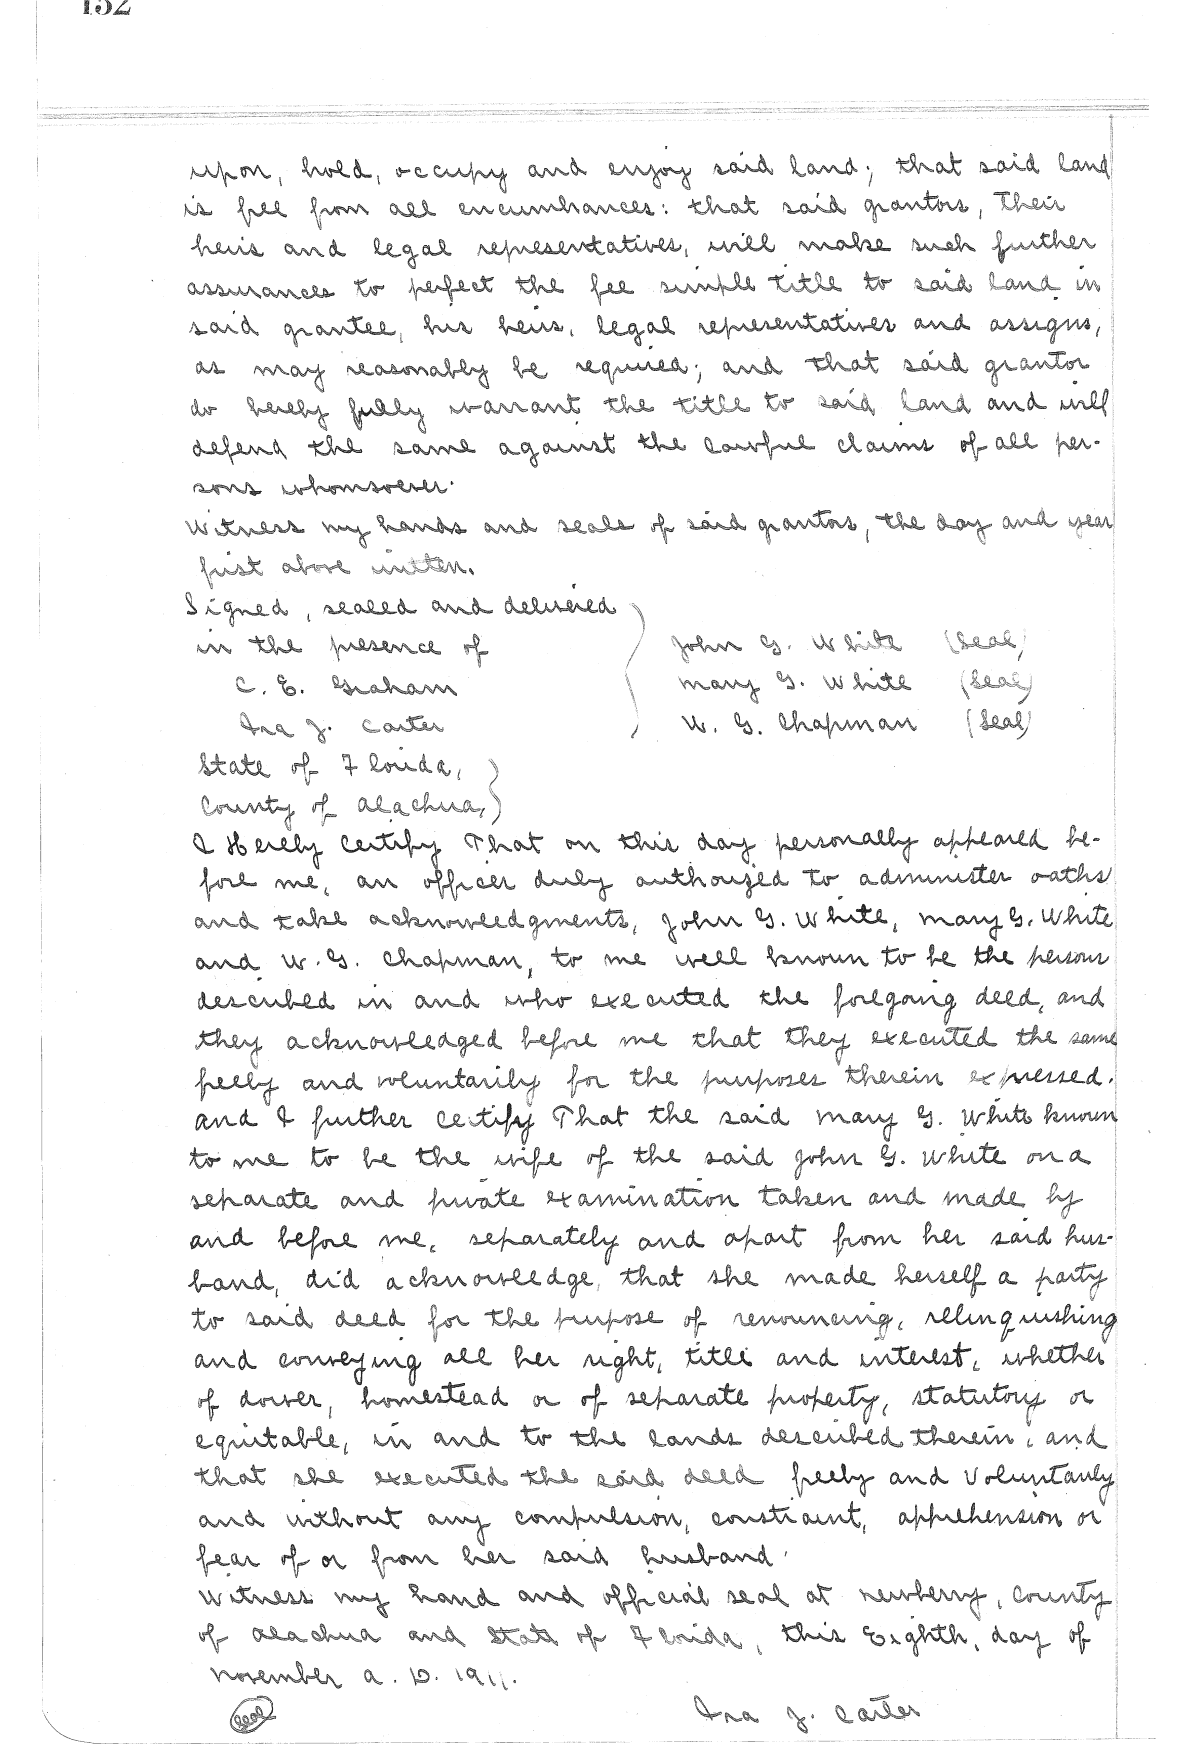 132
upon, hold, occupy and enjoy said land; that said land
is free from all encumbrances: that said grantors, their
heirs and legal representatives, will make such further
assurances to perfect the fee simple title to said land in
said grantee, his heirs, legal representatives and assigns,
as may reasonably be required; and that said grantor
do hereby fully warrant the title to said land and will
defend the same against the lawful claims of all per-
sons whomsoever.
Witness my hands and seals of said grantors, the day and year
first above written.
Signed, sealed and delivered
in the presence of John G. White (Seal)
C. E. Graham Mary G. White (Seal)
Ira J. Carter W. G. Chapman (Seal)
State of Florida,
County of Alachua,
I Hereby Certify That on this day personally appeared be-
fore me, an officer duly authorized to administer oaths
and take acknowledgments, John G. White, Mary G. White
and W. G. Chapman, to me well known to be the persons
described in and who executed the foregoing deed, and
they acknowledged before me that they executed the same
freely and voluntarily for the purposes therein expressed.
and I further certify That the said Mary G. White known
to me to be the wife of the said John G. White on a
separate and private examination taken and made by
and before me, separately and apart from her said hus-
band, did acknowledge that she made herself a party
to said deed for the purpose of renouncing, relinquishing
and conveying all her right, title and interest, whether
of dower, homestead or of separate property, statutory or
equitable, in and to the lands described therein, and
that she executed the said deed freely and voluntarily
and without any compulsion, constraint, apprehension or
fear of or from her said husband.
Witness my hand and official seal at Newberry, County
of Alachua and State of Florida, this Eighth, day of
November A. D. 1911.
Seal Ira J. Carter